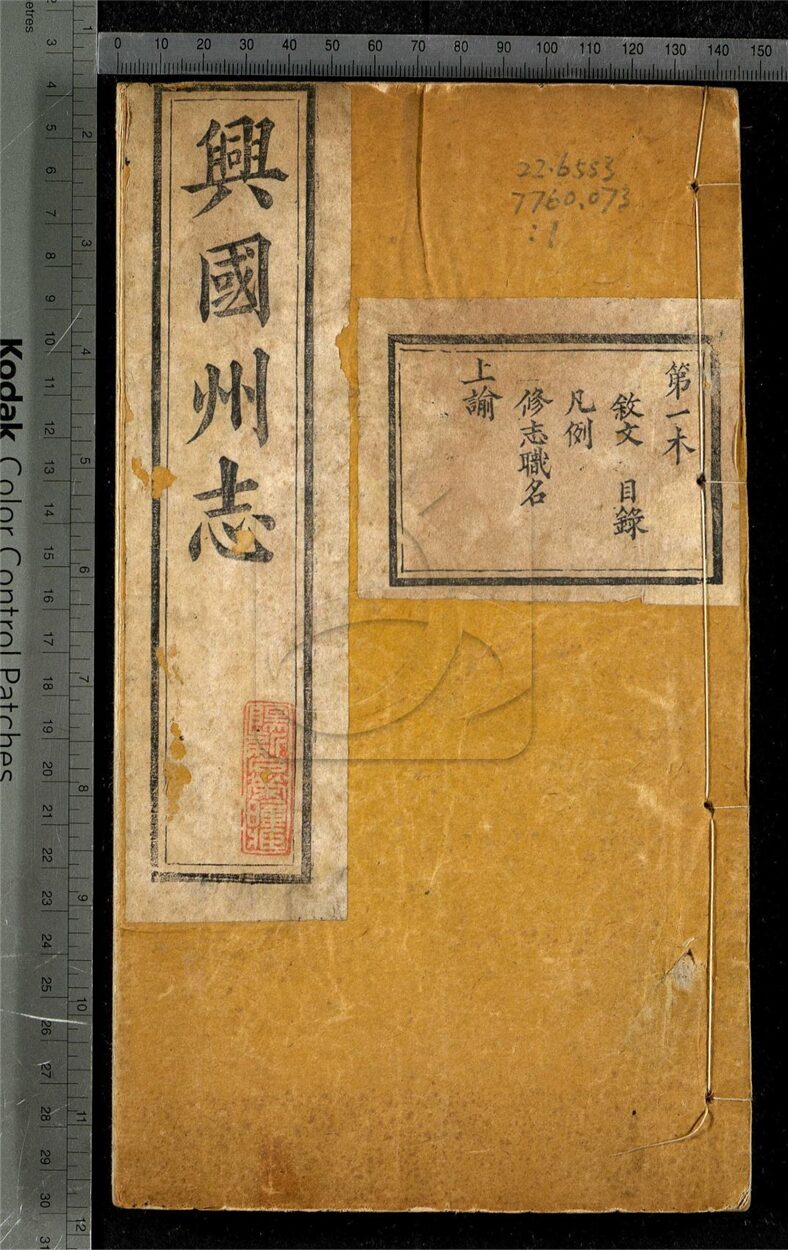 0 10 20 30 40 50 60 70 80 90 100 110 120 130 140 150
22.6553
7760.073
:1
興國州志
第一木
敘文 目錄
凡例
修志職名
上諭
Kodak Color Control Patches
etres
3 4 5 6 7 8 9 10 11 12 13 14 15 16 17 18 19 20 21 22 23 24 25 26 27 28 29 30 31
1 2 3 4 5 6 7 8 9 10 11 12